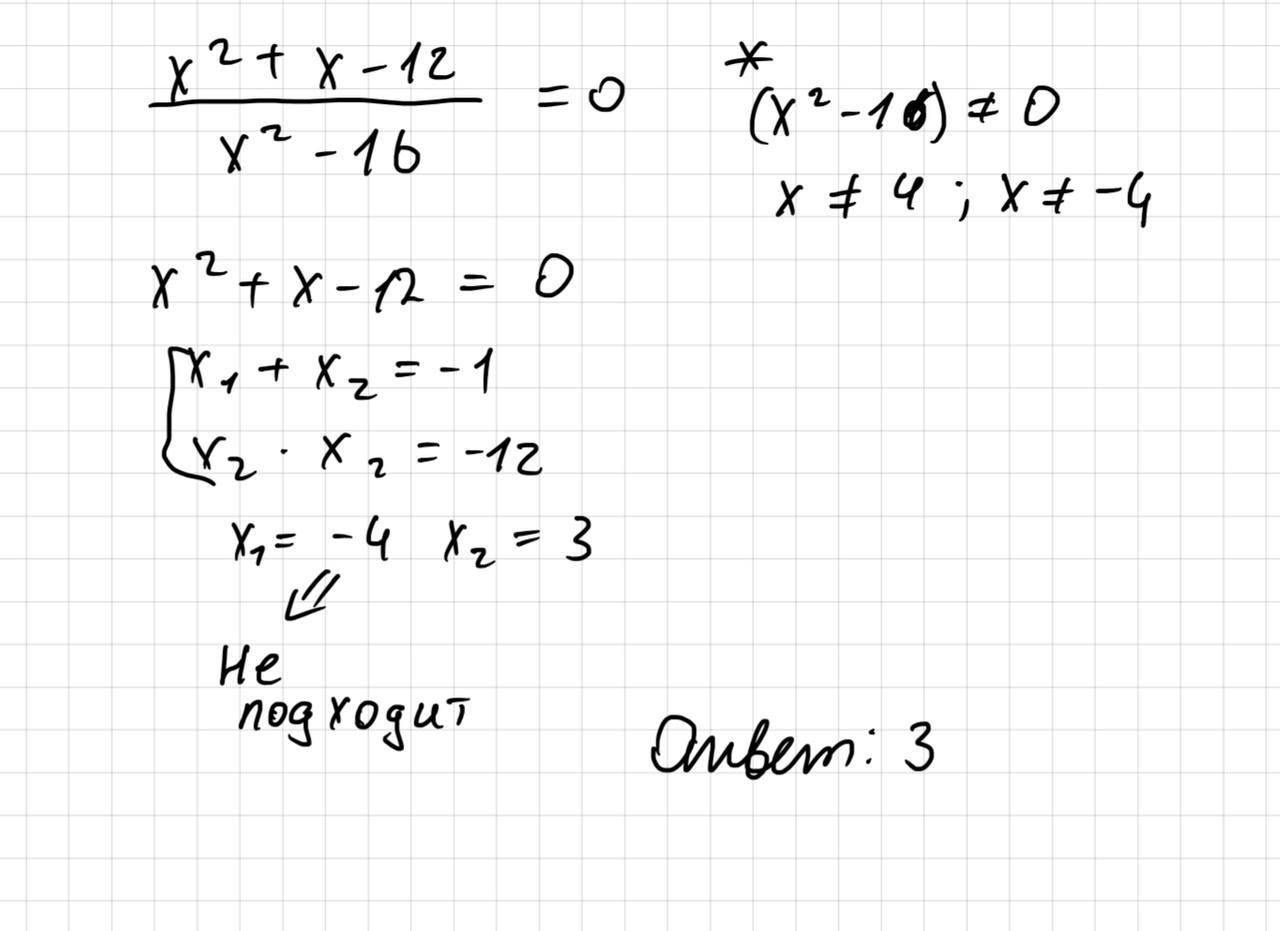 x² + x - 12
x² - 16
= 0
*
(x² - 16) ≠ 0
x ≠ 4 ; x ≠ -4
x² + x - 12 = 0
x₁ + x₂ = -1
x₂ · x₂ = -12
x₁ = -4 x₂ = 3
Не
подходит
Ответ: 3